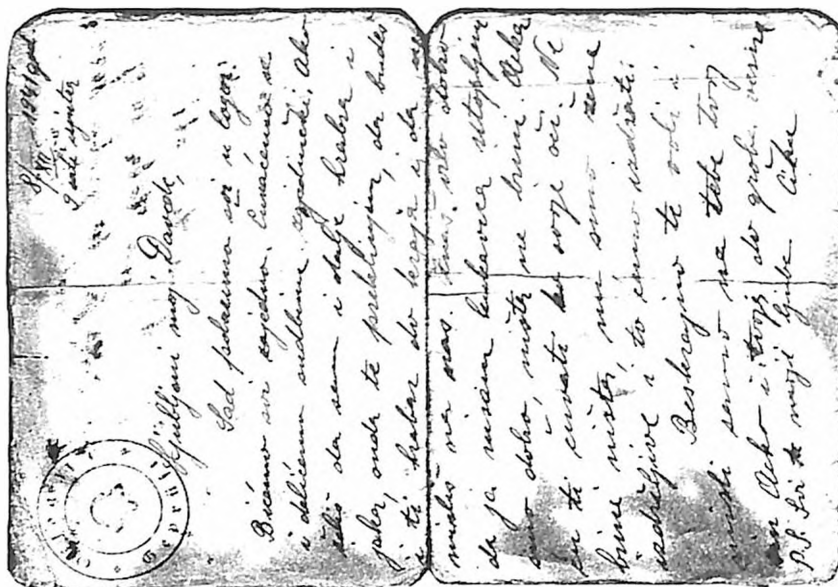 8/XII 1941 god.
9 sati u jutru
Ljubljeni moj Danak,
Sad polazimo svi u logor.
Bićemo svi zajedno. Će se
i delićemo sudbinu zajednički. Ako
želiš da sam i dalje hrabra i
jaka, onda te preklinjem, da budeš
i ti hrabar do kraja i, da ne
misliš na nas. Znaš vrlo dobro
da ja nisam kukavica
smo dobro, ništa ne brini. Acka
ću ti čuvati ko svoje oči. Ne
brini ništa, mi smo žene
izdržljive i to ćemo izdržati.
Beskrajno te voli i
misli samo na tebe tvoj
Acko i tvoja do groba verna
P.S. Svi te mnogo ljube
Beograd